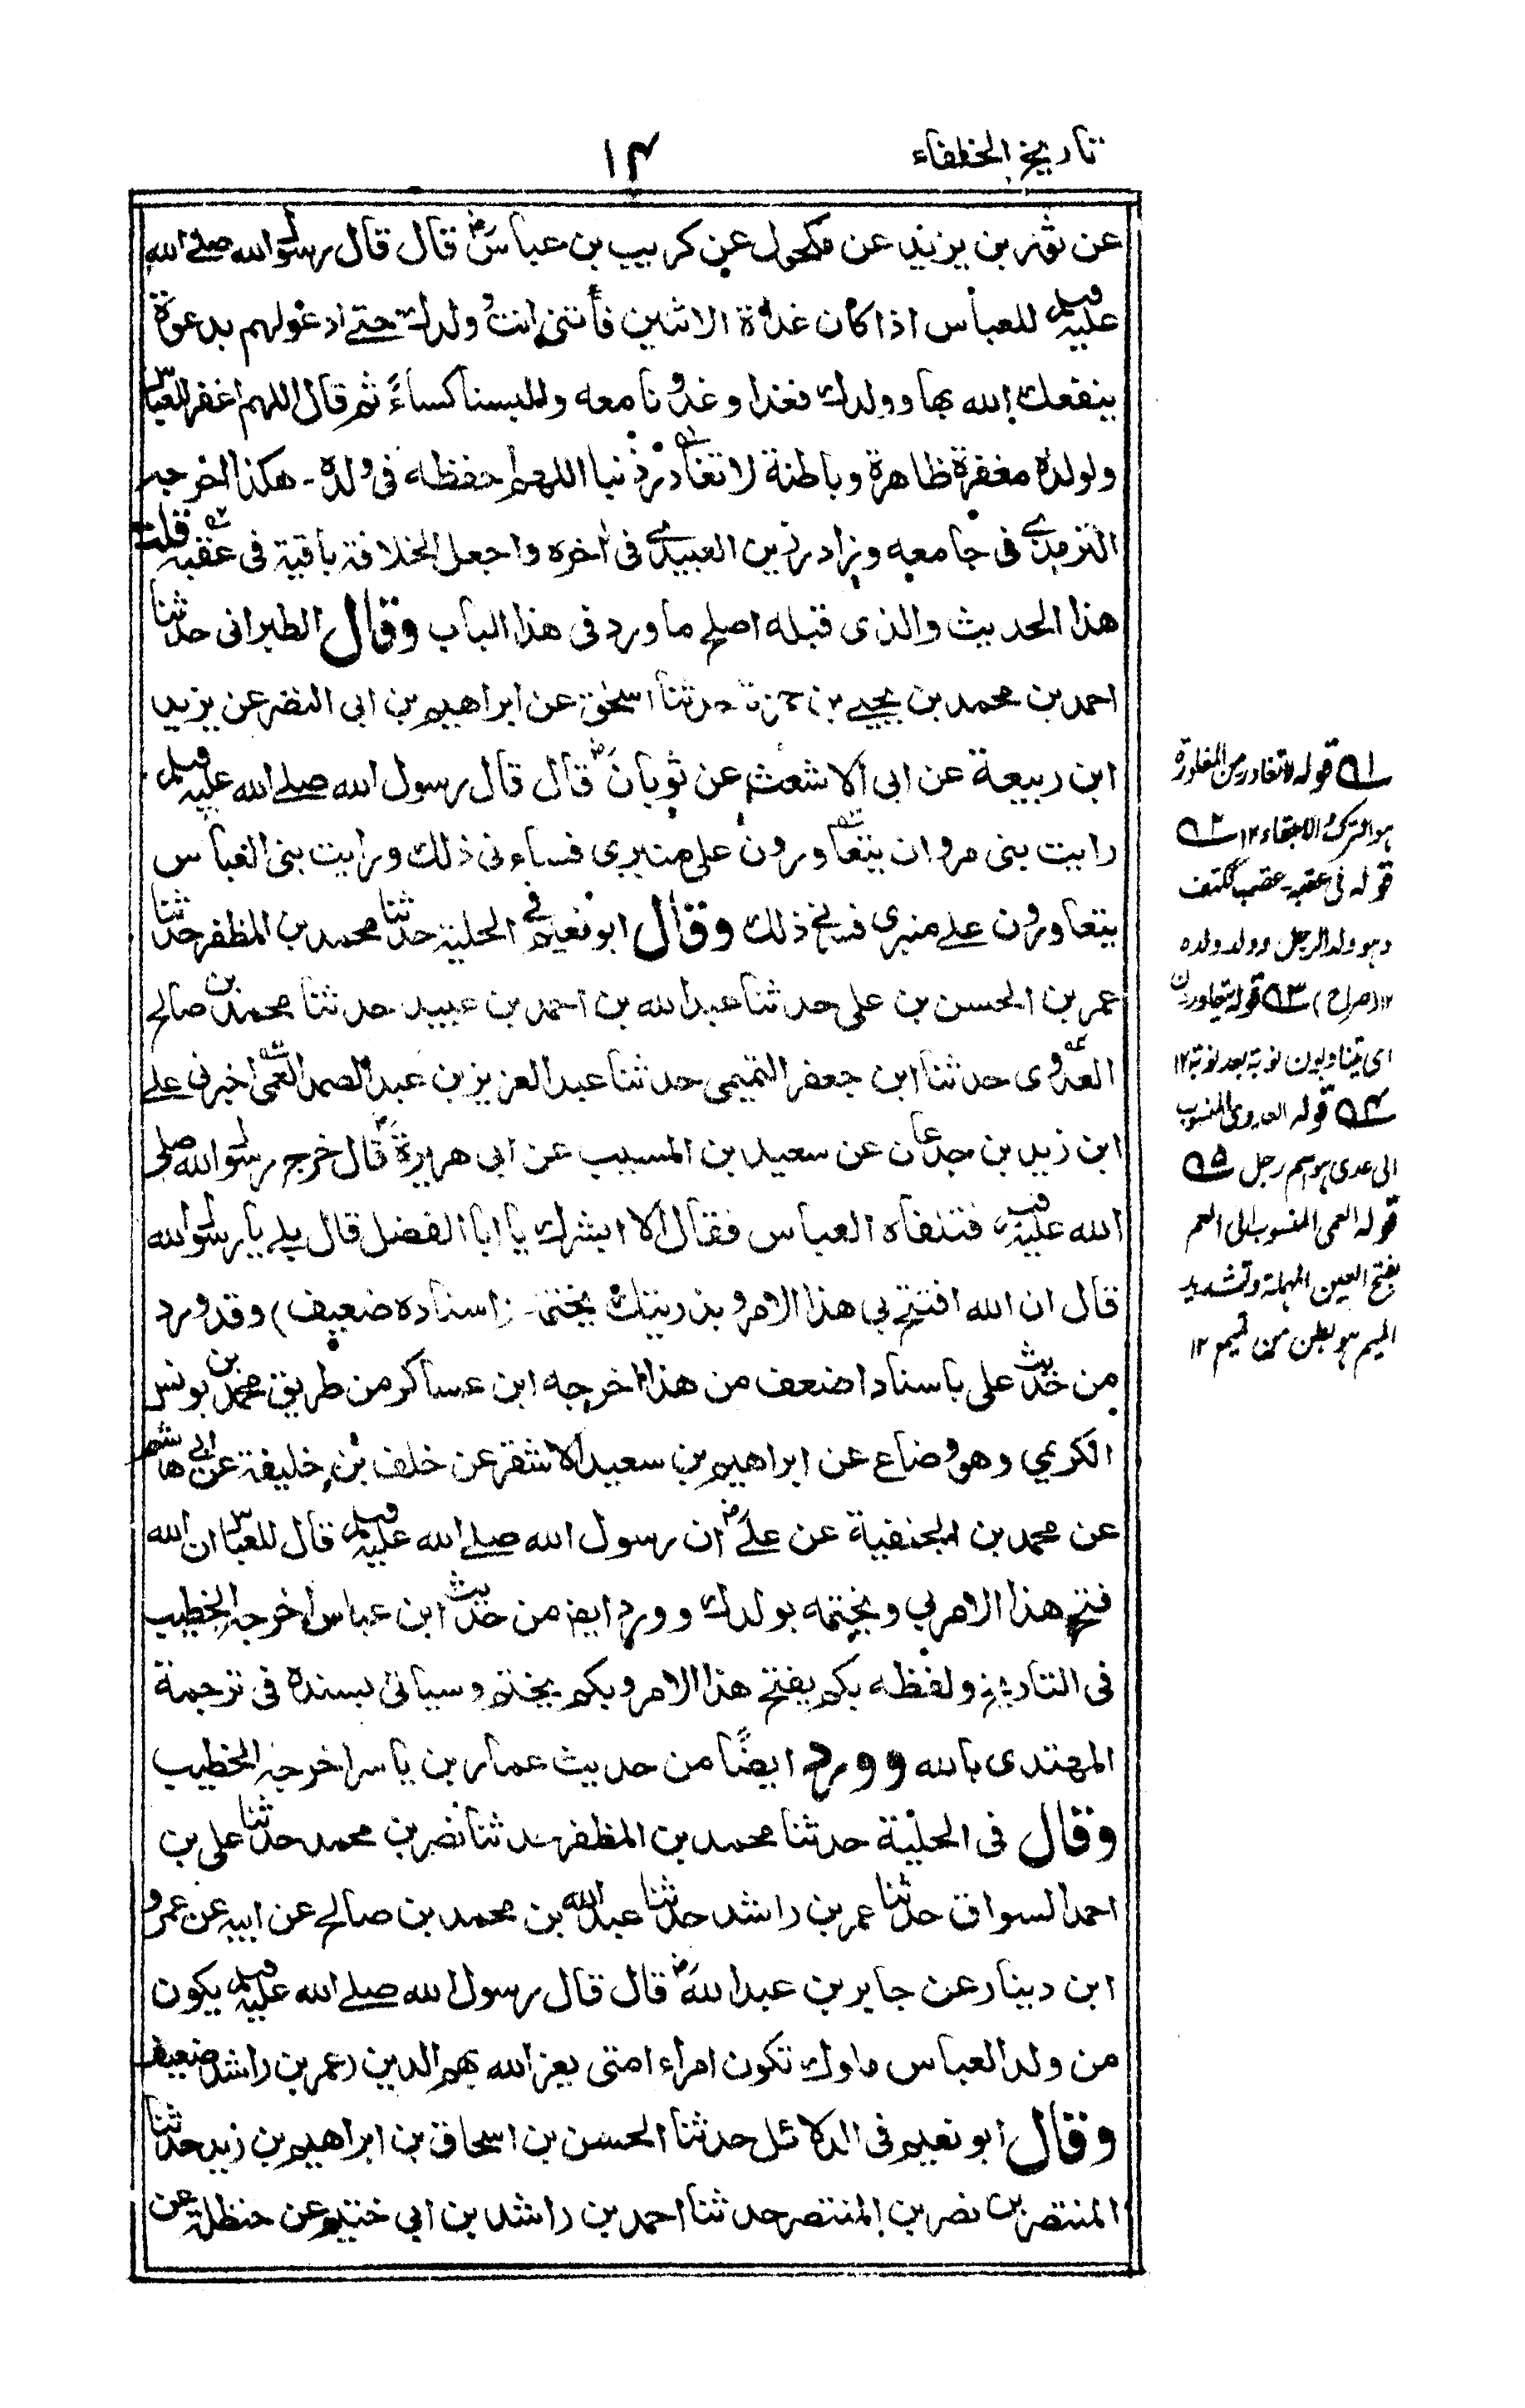 تاريخ الخلفاء
١٤
عن ثور بن يزيد عن مكحول عن كريب بن عباس رض قال قال رسول الله صلے الله
عليه وسلم للعباس اذا كان غداة الاثنين فأتنى انت وولدك حتے ادعو لهم بدعوة
ينفعك الله بها وولدك فغدا وغدونا معه والبسنا كساءً ثم قال اللهم اغفر للعباس
ولولده مغفرة ظاهرة وباطنة لا تغادر ذنبا اللهم احفظه فى ولده - هكذا اخرجه
الترمذے فى جامعه وزاد رزين العبيدے فى اخره واجعل الخلافة باقية فى عقبه قلت
هذا الحديث والذى قبله اصلح ما ورد فى هذا الباب وقال الطبرانى حدثنا
احمد بن محمد بن يحيے بن حمزة حدثنا اسحٰق عن ابراهيم بن ابى النضر عن يزيد
ابن ربيعة عن ابى الاشعث عن ثوبان رض قال قال رسول الله صلے الله عليه وسلم
رايت بنى مروان يتعاورون على منبرى فساءنى ذلك ورايت بنى العباس
يتعاورون علے منبرى فسرنى ذلك وقال ابو نعيم فى الحلية حدثنا محمد بن المظفر حدثنا
عمر بن الحسن بن على حدثنا عبد الله بن احمد بن عبيد حدثنا محمد بن صالح
العدوى حدثنا ابن جعفر التميمى حدثنا عبد العزيز بن عبد الصمد العمى اخبرنى علے
ابن زيد بن جدعان عن سعيد بن المسيب عن ابى هريرة رض قال خرج رسول الله صلى
الله عليه وسلم فتلقاه العباس فقال الا ابشرك يا ابا الفضل قال بلے يا رسول الله
قال ان الله افتتح بى هذا الامر وبذريتك يختمه - (اسناده ضعيف) وقد ورد
من حديث على باسناد اضعف من هذا اخرجه ابن عساكر من طريق محمد بن يونس
الكريمي وهو وضاع عن ابراهيم بن سعيد الاشقر عن خلف بن خليفة عن ابى هاشم
عن محمد بن الحنفية عن علے رض ان رسول الله صلے الله عليه وسلم قال للعباس ان الله
فتح هذا الامر بي ويختمه بولدك وورد ايضا من حديث ابن عباس اخرجه الخطيب
فى التاريخ ولفظه بكم يفتح هذا الامر وبكم يختم وسياتى بسنده فى ترجمة
المهتدى بالله وورد ايضًا من حديث عمار بن ياسر اخرجه الخطيب
وقال فى الحلية حدثنا محمد بن المظفر حدثنا نصر بن محمد حدثنا على بن
احمد السواق حدثنا عمر بن راشد حدثنا عبد الله بن محمد بن صالح عن ابيه عن عمرو
ابن دينار عن جابر بن عبد الله رض قال قال رسول الله صلے الله عليه وسلم يكون
من ولد العباس ملوك تكون امراء امتى يعز الله بهم الدين (عمر بن راشد ضعيف
وقال ابو نعيم فى الدلائل حدثنا الحسن بن اسحاق بن ابراهيم بن زيد حدثنا
المنتصر بن نصر بن المنتصر حدثنا احمد بن راشد بن ابي خثيم عن حنظلة عن
١ قوله لا تغادر من المغادرة
هو الترك والابقاء ١٢ ٢
قوله فى عقبه - عقب ككتف
وهو ولد الرجل وولد ولده
١٢ (صراح) ٣ قوله يتعاورون
اى يتناوبون نوبة بعد نوبة ١٢
٤ قوله العدوى المنسوب
الى عدى هو اسم رجل ٥
قوله العمى المنسوب الى العم
بفتح العين المهملة وتشديد
الميم هو بطن من تميم ١٢